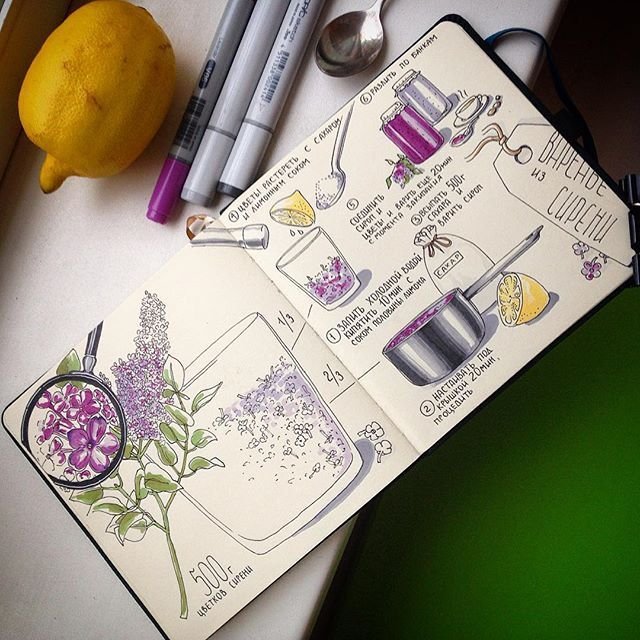 ВАРЕНЬЕ
ИЗ
СИРЕНИ
500г
ЦВЕТКОВ СИРЕНИ
1/3
2/3
① ЗАЛИТЬ ХОЛОДНОЙ ВОДОЙ
КИПЯТИТЬ 10 МИН С
СОКОМ ПОЛОВИНЫ ЛИМОНА
② НАСТАИВАТЬ ПОД
КРЫШКОЙ 20МИН,
ПРОЦЕДИТЬ
③ ВСЫПАТЬ 500г
САХАРА
ВАРИТЬ СИРОП
САХАР
④ ЦВЕТЫ РАСТЕРЕТЬ С САХАРОМ
И ЛИМОННЫМ СОКОМ
⑤ СОЕДИНИТЬ
СИРОП И
ЦВЕТЫ И ВАРИТЬ ЕЩЁ 20МИН
С МОМЕНТА ЗАКИПАНИЯ
⑥ РАЗЛИТЬ ПО БАНКАМ